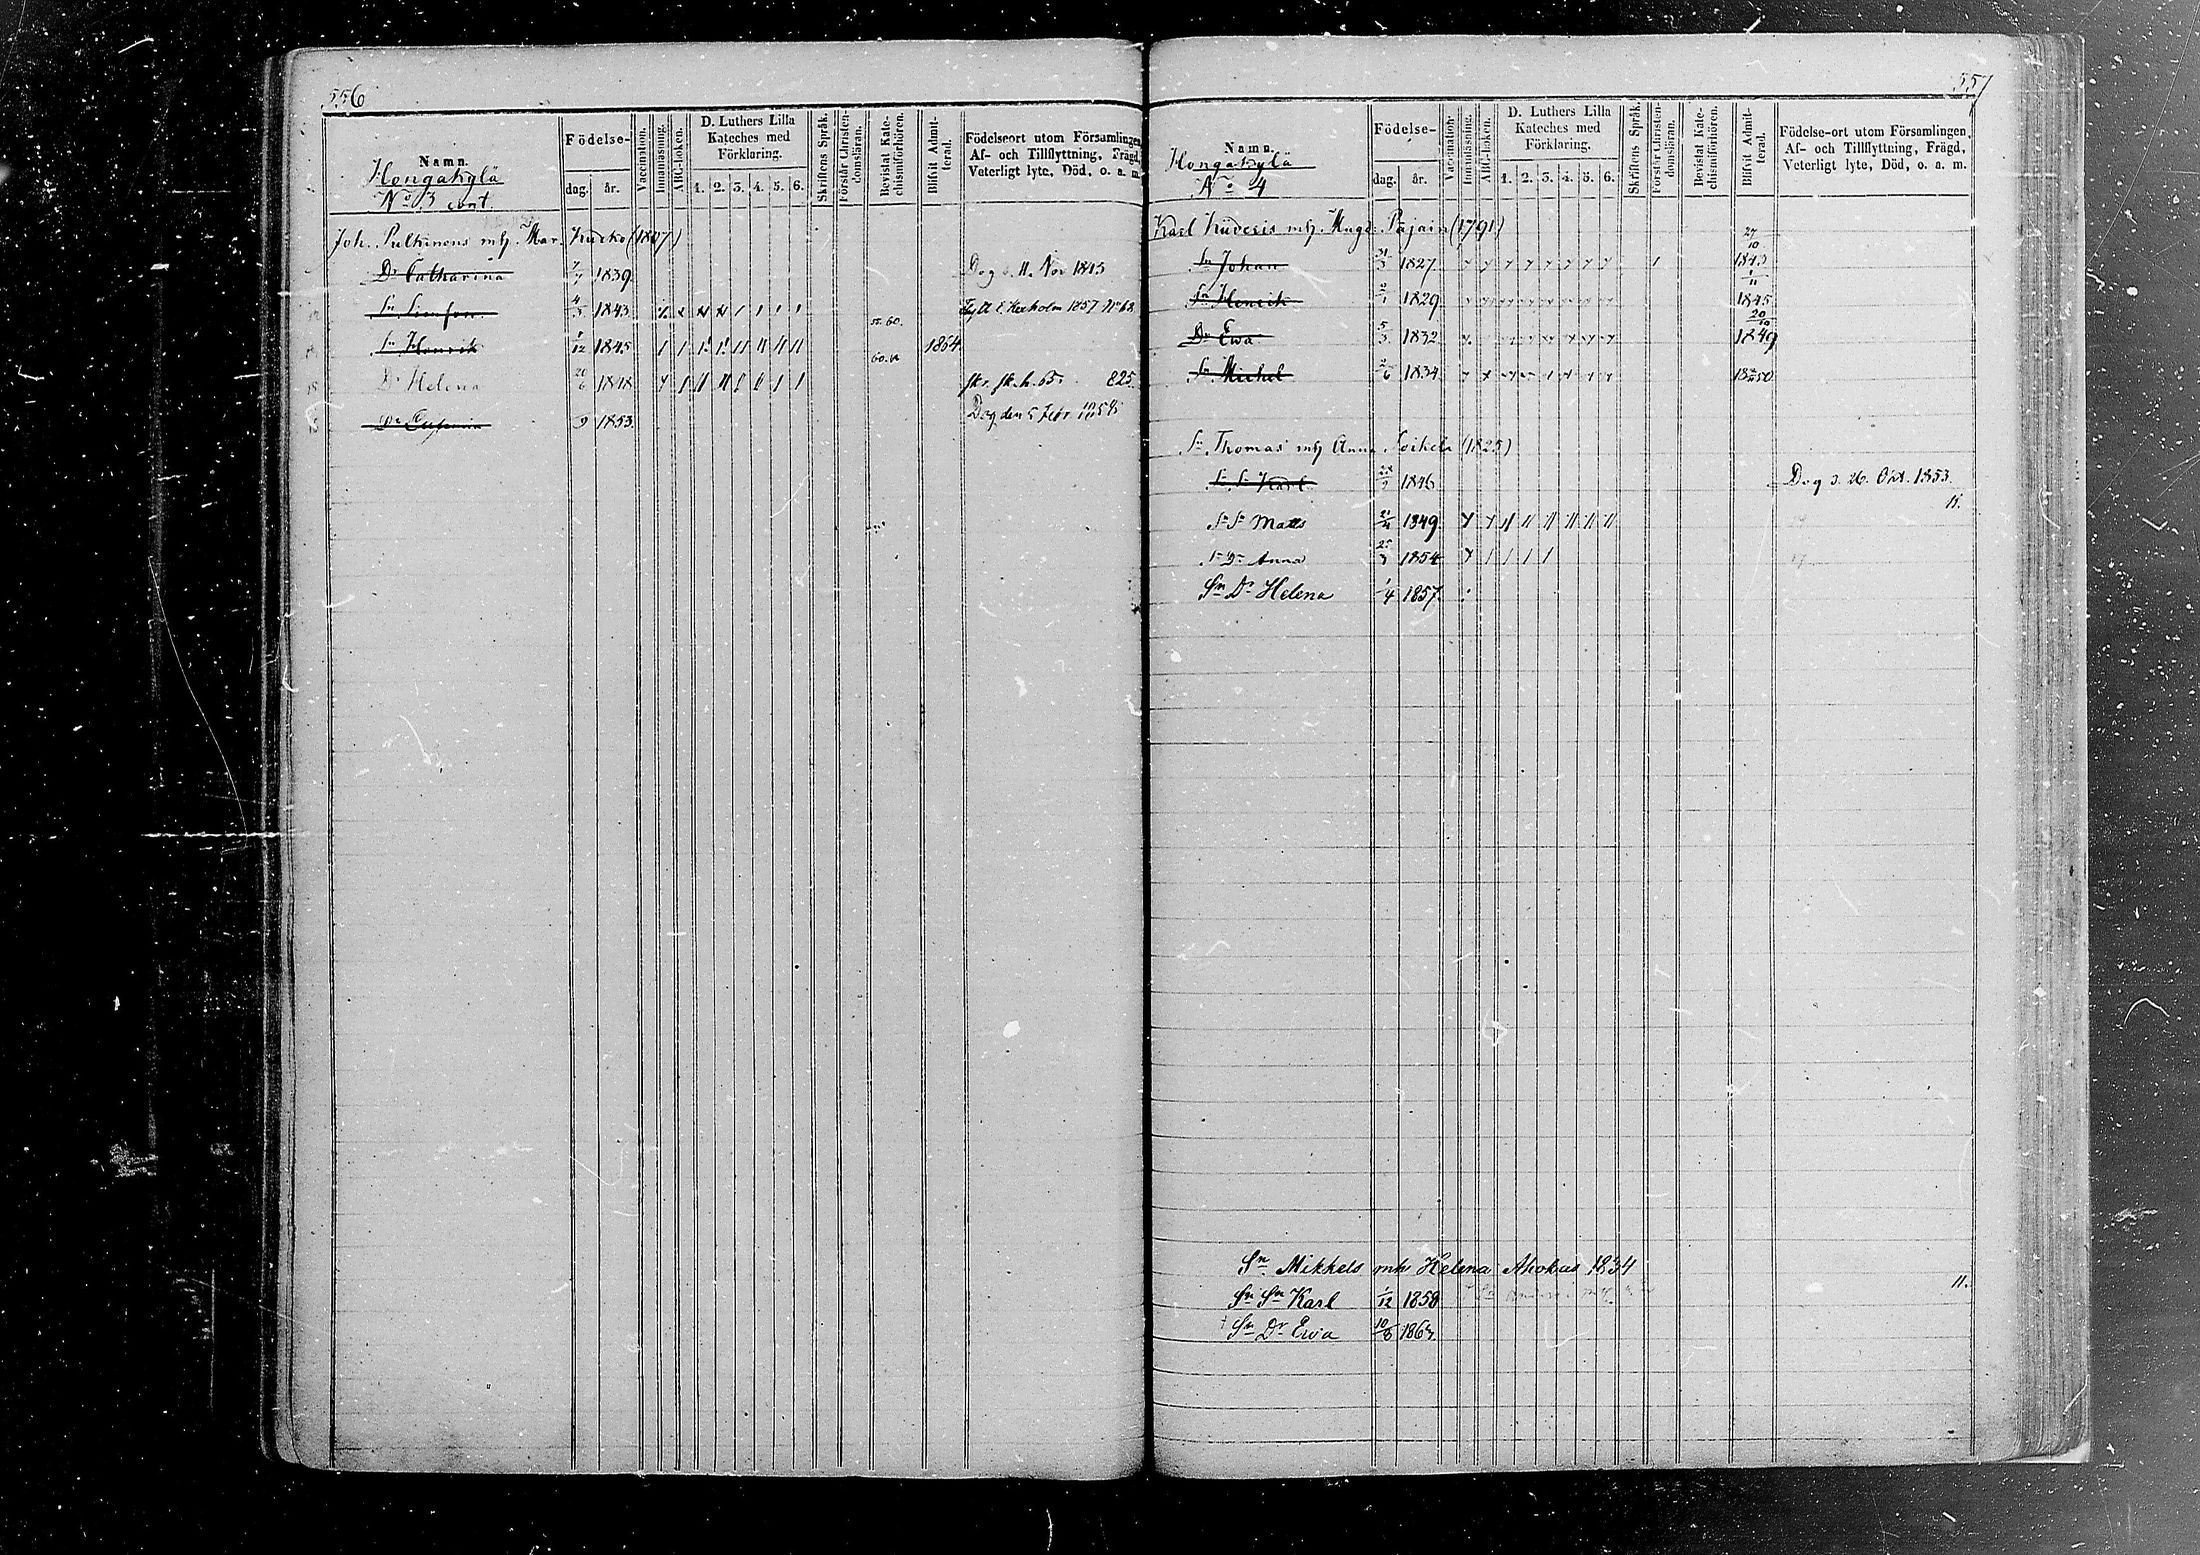 556
Namn.
Hongakylä
No 3 cont.
Födelse-
dag. år.
Vaccination.
Innanläsning.
ABC-boken.
D. Luthers Lilla
Kateches med
Förklaring.
1. 2. 3. 4. 5. 6.
Skriftens Språk.
Förstår Christen-
domsläran.
Bevistat Kate-
chismiförhören.
Blifvit Admit-
terad.
Födelseort utom Församlingen,
Af- och Tillflyttning, Frägd,
Veterligt lyte, Död, o. a. m.
Joh. Pulkinens mh. Mar. Kurko (1807)
Dr Catharina 1839 Dog d. 11. Nov 1845
Sn 4/5 1843 1857 No 68
60.
Sn Henrik 1845 1864
60.
Dr Helena 20/6 1848 825
Dr 1853 Dog den 5 Febr
557
Namn.
Hongakylä
No 4
Födelse-
dag. år.
Vaccination
Innanläsning.
ABC-boken.
D. Luthers Lilla
Kateches med
Förklaring.
1. 2. 3. 4. 5. 6.
Skriftens Språk.
Förstår Christen-
domsläran.
Bevistat Kate-
chismiförhören.
Blifvit Admit-
terad.
Födelse-ort utom Församlingen,
Af- och Tillflyttning, Frägd,
Veterligt lyte, Död, o. a. m.
Karl mh. Magd. Pajain (1791)
Sn Johan 31/3 1827 27/10 1843
Sn Henrik 1829 1/11 1845
Dr Ewa 5/3 1832 20/10 1849
Sn Michel 1834 1850
Sn Thomas mh Anna Toikela (1825)
Sn Sn Karl 1846 Dog d. 26. Okt. 1853
15.
Sn Sn Matts 1849
Sn Dr Anna 1854
Sn Dr Helena 1/4 1857
Sn Mikkels mh Helena Ahokas 1834
Sn Sn Karl 1/12 1858 11.
Sn Dr Ewa 10/8